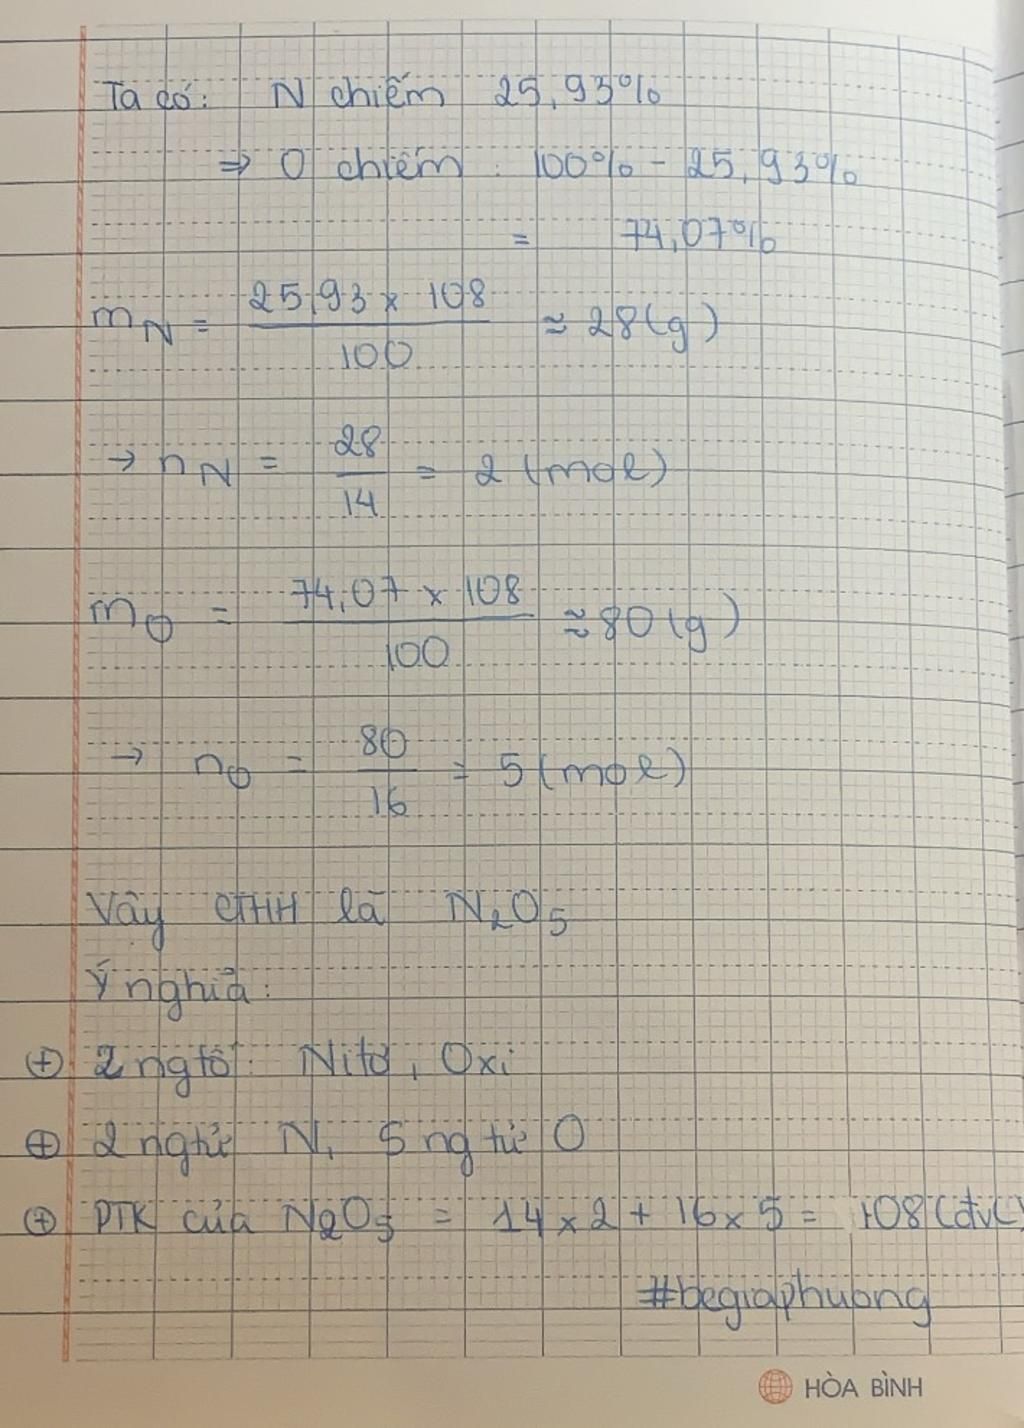 Ta có: N chiếm 25,93%
⇒ O chiếm : 100% - 25,93%
= 74,07%
mN = 25,93 × 108 / 100 ≈ 28(g)
→ nN = 28 / 14 = 2 (mol)
mO = 74,07 × 108 / 100 ≈ 80(g)
→ nO = 80 / 16 = 5 (mol)
Vậy CTHH là N2O5
Ý nghĩa:
⊕ 2 ng tố: Nitơ, Oxi
⊕ 2 ng tử N, 5 ng tử O
⊕ PTK của N2O5 = 14 × 2 + 16 × 5 = 108 (đvC)
#begiaphuong
HÒA BÌNH